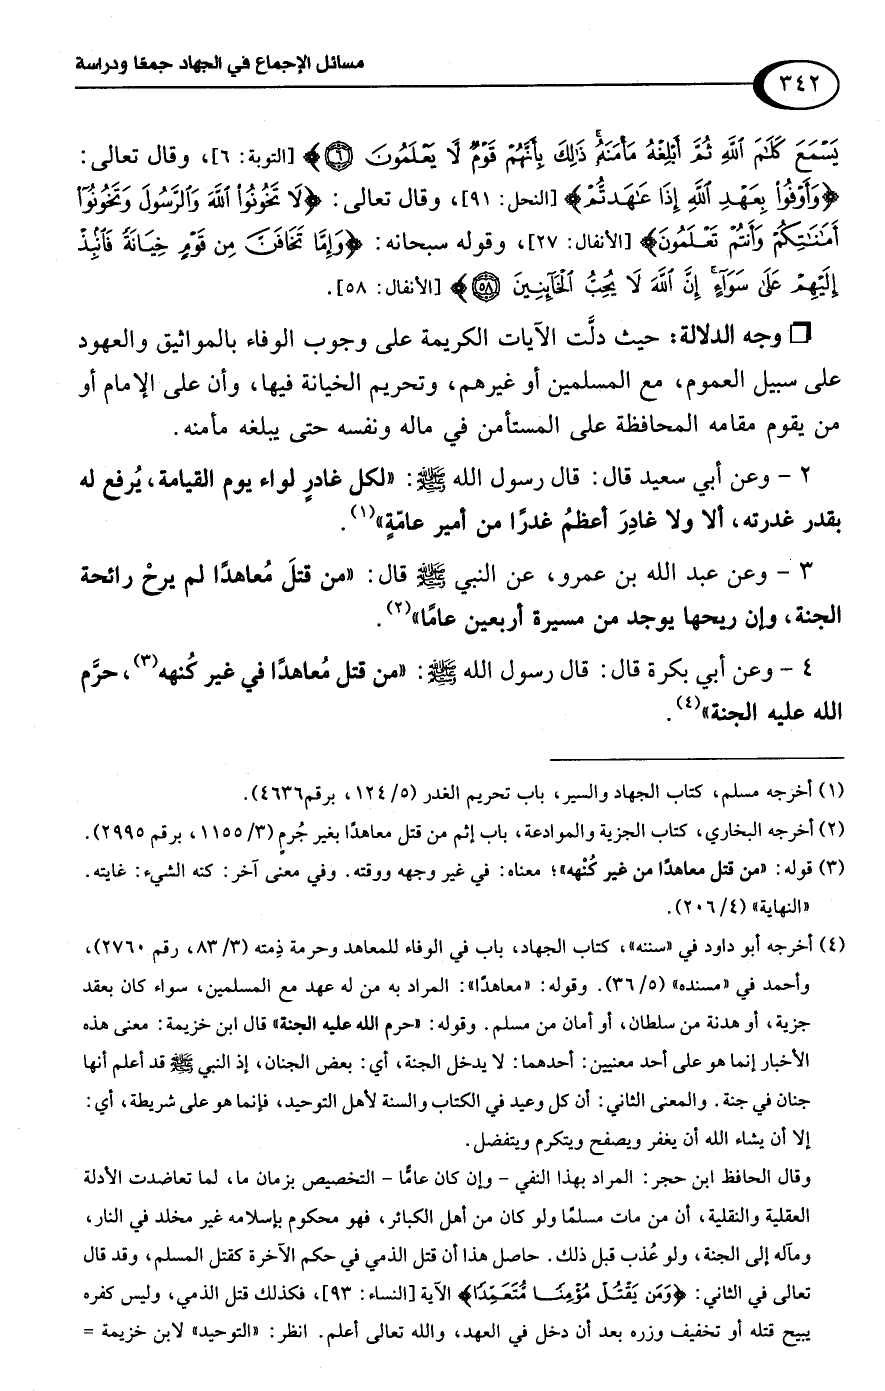 مسائل الإجماع في الجهاد جمعًا ودراسة
٣٤٢
يَسْمَعَ كَلَٰمَ ٱللَّهِ ثُمَّ أَبْلِغْهُ مَأْمَنَهُۥۚ ذَٰلِكَ بِأَنَّهُمْ قَوْمٌ لَّا يَعْلَمُونَ ٦﴾ [التوبة: ٦]، وقال تعالى:
﴿وَأَوْفُوا۟ بِعَهْدِ ٱللَّهِ إِذَا عَٰهَدتُّمْ﴾ [النحل: ٩١]، وقال تعالى: ﴿لَا تَخُونُوا۟ ٱللَّهَ وَٱلرَّسُولَ وَتَخُونُوٓا۟
أَمَٰنَٰتِكُمْ وَأَنتُمْ تَعْلَمُونَ﴾ [الأنفال: ٢٧]، وقوله سبحانه: ﴿وَإِمَّا تَخَافَنَّ مِن قَوْمٍ خِيَانَةً فَٱنۢبِذْ
إِلَيْهِمْ عَلَىٰ سَوَآءٍۚ إِنَّ ٱللَّهَ لَا يُحِبُّ ٱلْخَآئِنِينَ ٥٨﴾ [الأنفال: ٥٨].
❒ وجه الدلالة: حيث دلَّت الآيات الكريمة على وجوب الوفاء بالمواثيق والعهود
على سبيل العموم، مع المسلمين أو غيرهم، وتحريم الخيانة فيها، وأن على الإمام أو
من يقوم مقامه المحافظة على المستأمن في ماله ونفسه حتى يبلغه مأمنه.
٢ - وعن أبي سعيد قال: قال رسول الله ﷺ: «لكل غادرٍ لواء يوم القيامة، يُرفع له
بقدر غدرته، ألا ولا غادِرَ أعظمُ غدرًا من أمير عامّةٍ»(١).
٣ - وعن عبد الله بن عمرو، عن النبي ﷺ قال: «من قتلَ مُعاهدًا لم يرحْ رائحة
الجنة، وإن ريحها يوجد من مسيرة أربعين عامًا»(٢).
٤ - وعن أبي بكرة قال: قال رسول الله ﷺ: «من قتل مُعاهدًا في غير كُنهه(٣)، حرَّم
الله عليه الجنة»(٤).
(١) أخرجه مسلم، كتاب الجهاد والسير، باب تحريم الغدر (٥/ ١٢٤، برقم٤٦٣٦).
(٢) أخرجه البخاري، كتاب الجزية والموادعة، باب إثم من قتل معاهدًا بغير جُرمٍ (٣/ ١١٥٥، برقم ٢٩٩٥).
(٣) قوله: «من قتل معاهدًا من غير كُنْهه»؛ معناه: في غير وجهه ووقته. وفي معنى آخر: كنه الشيء: غايته.
«النهاية» (٤/ ٢٠٦).
(٤) أخرجه أبو داود في «سننه»، كتاب الجهاد، باب في الوفاء للمعاهد وحرمة ذِمته (٣/ ٨٣، رقم ٢٧٦٠)،
وأحمد في «مسنده» (٥/ ٣٦). وقوله: «معاهدًا»: المراد به من له عهد مع المسلمين، سواء كان بعقد
جزية، أو هدنة من سلطان، أو أمان من مسلم. وقوله: «حرم الله عليه الجنة» قال ابن خزيمة: معنى هذه
الأخبار إنما هو على أحد معنيين: أحدهما: لا يدخل الجنة، أي: بعض الجنان، إذ النبي ﷺ قد أعلم أنها
جنان في جنة. والمعنى الثاني: أن كل وعيد في الكتاب والسنة لأهل التوحيد، فإنما هو على شريطة، أي:
إلا أن يشاء الله أن يغفر ويصفح ويتكرم ويتفضل.
وقال الحافظ ابن حجر: المراد بهذا النفي - وإن كان عامًّا - التخصيص بزمان ما، لما تعاضدت الأدلة
العقلية والنقلية، أن من مات مسلمًا ولو كان من أهل الكبائر، فهو محكوم بإسلامه غير مخلد في النار،
ومآله إلى الجنة، ولو عُذب قبل ذلك. حاصل هذا أن قتل الذمي في حكم الآخرة كقتل المسلم، وقد قال
تعالى في الثاني: ﴿وَمَن يَقْتُلْ مُؤْمِنًا مُّتَعَمِّدًا﴾ الآية [النساء: ٩٣]، فكذلك قتل الذمي، وليس كفره
يبيح قتله أو تخفيف وزره بعد أن دخل في العهد، والله تعالى أعلم. انظر: «التوحيد» لابن خزيمة =